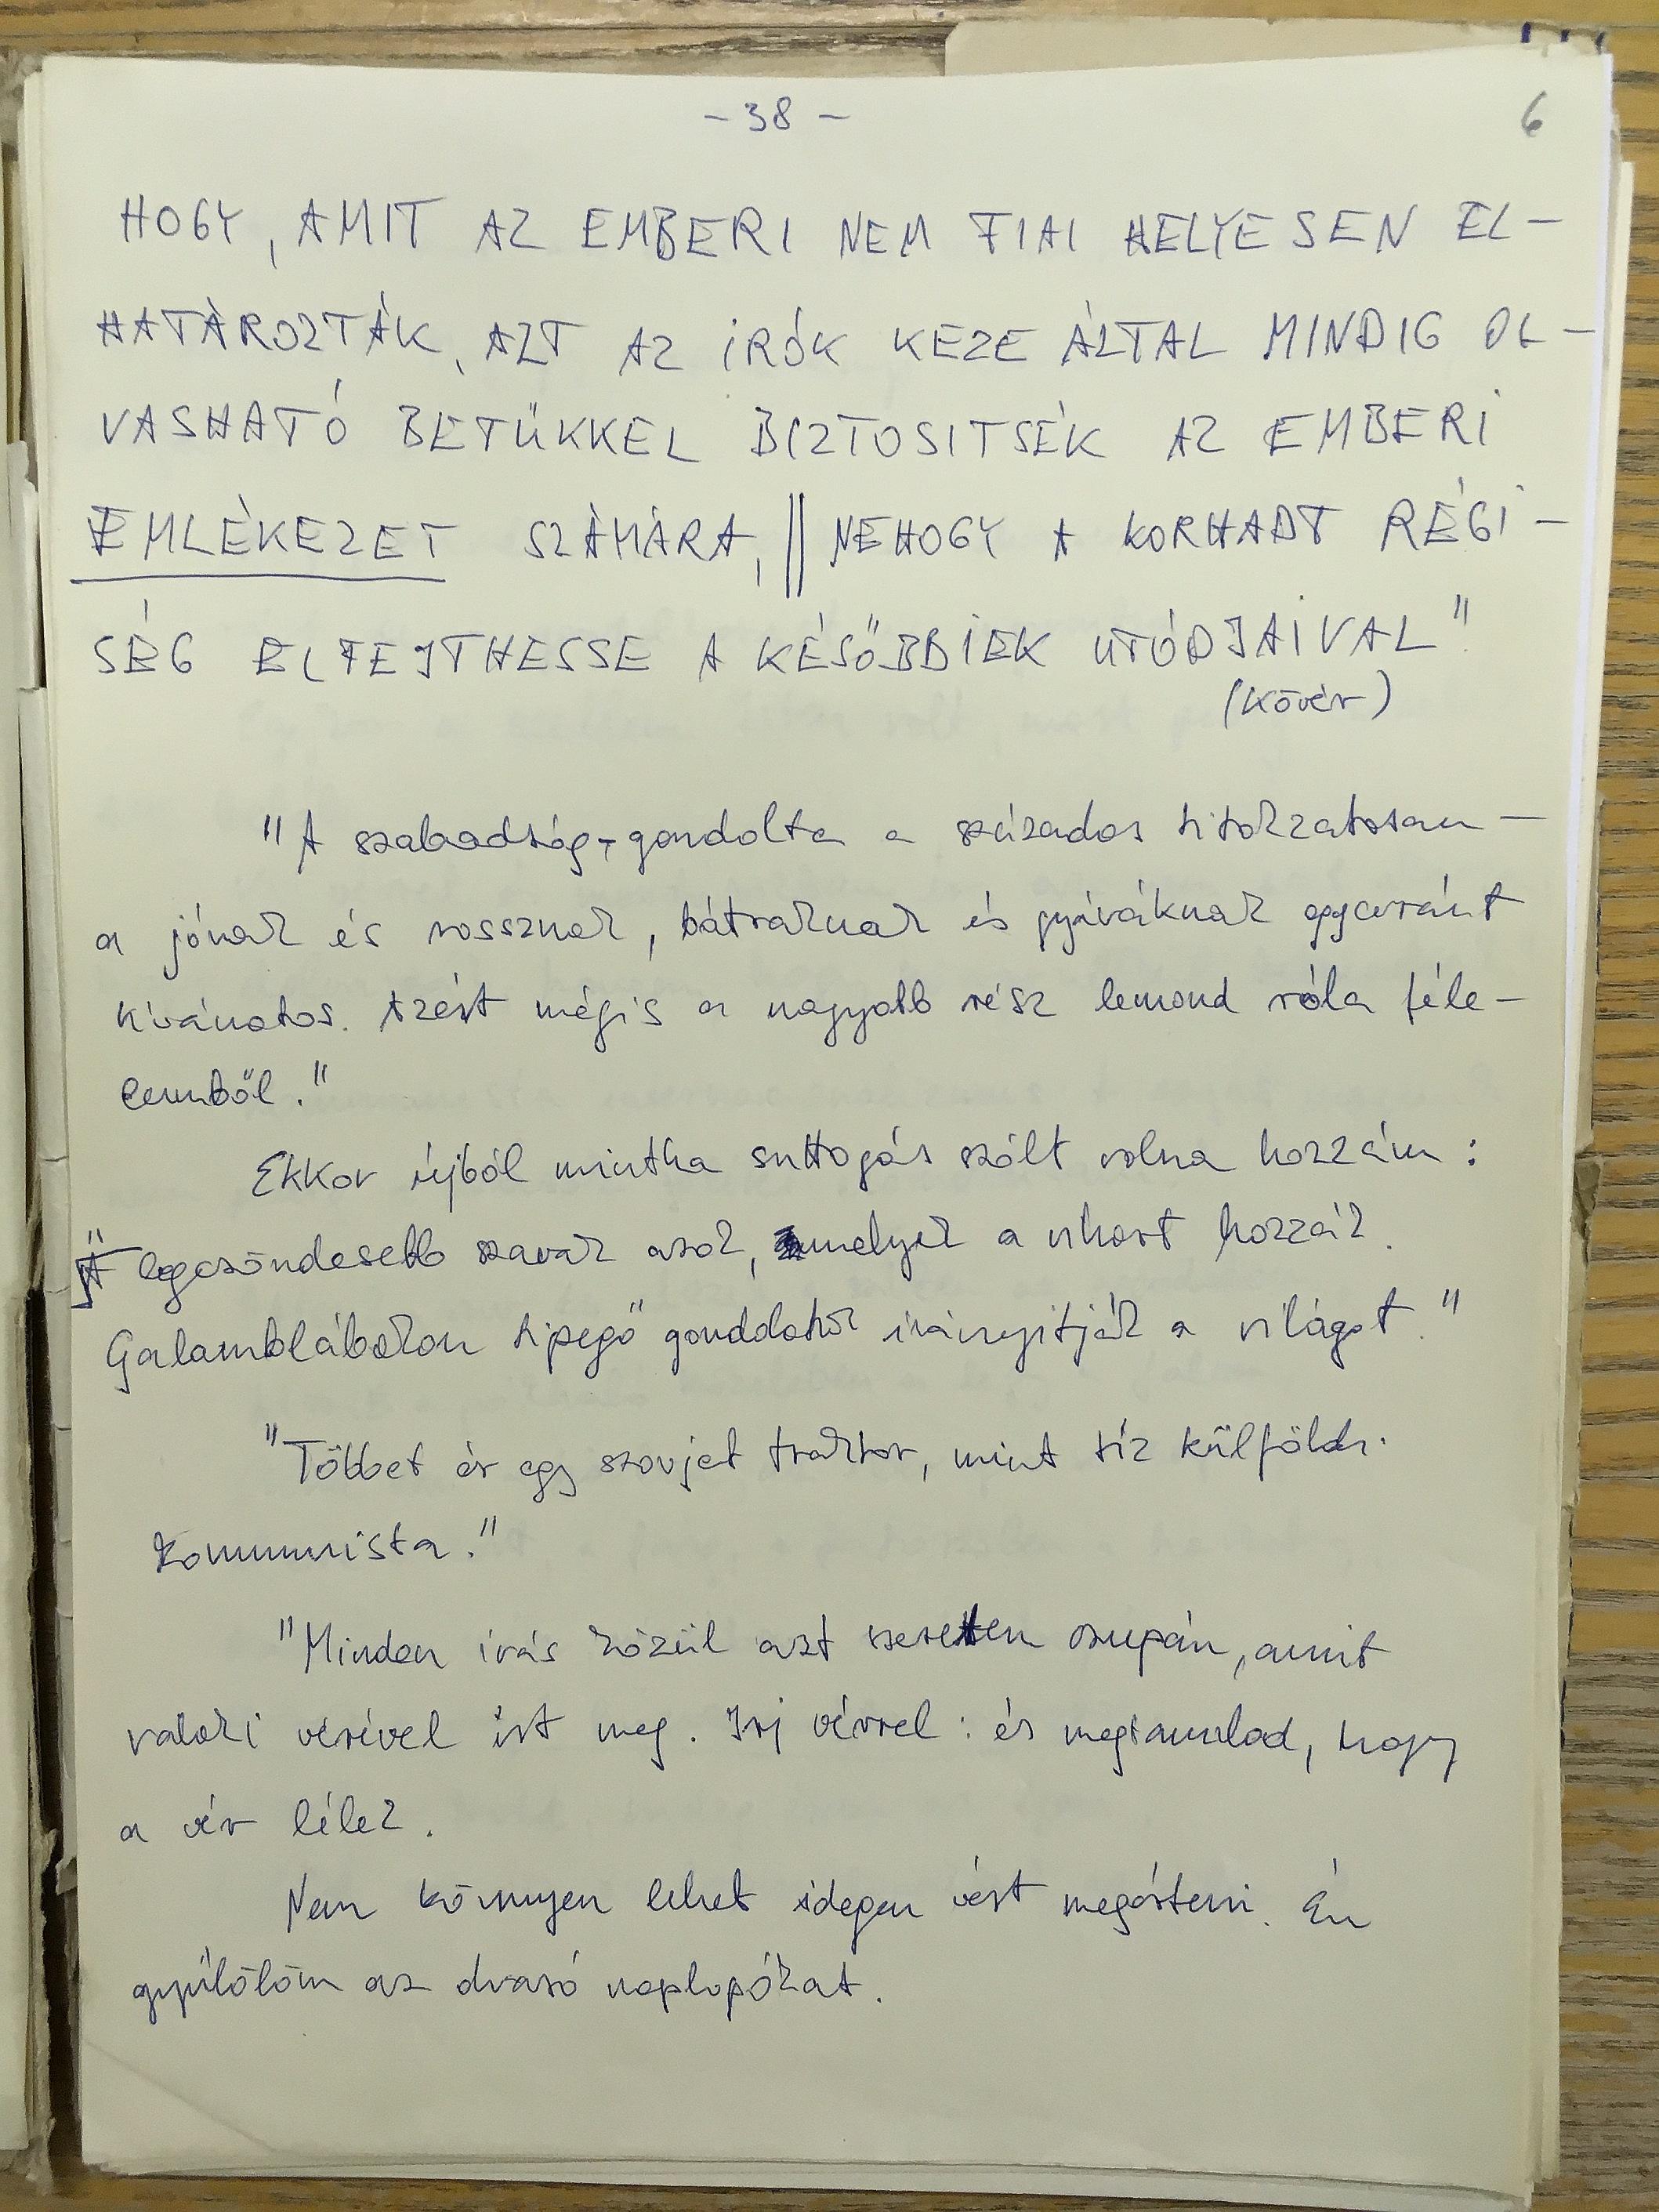 - 38 -
6
HOGY, AMIT AZ EMBERI NEM FIAI HELYESEN EL-
HATÁROZTÁK, AZT AZ ÍRÓK KEZE ÁLTAL MINDIG OL-
VASHATÓ BETŰKKEL BIZTOSITSÉK AZ EMBERI
EMLÉKEZET SZÁMÁRA, || NEHOGY A KORHADT RÉGI-
SÉG ELFEJTHESSE A KÉSŐBBIEK UTÓDJAIVAL"
(Kövér)
"A szabadság - gondolta a százados titokzatosan -
a jónak és rossznak, bátraknak és gyáváknak egyaránt
kívánatos. Azért mégis a nagyobb rész lemond róla féle-
lemből."
Ekkor újból mintha suttogás szólt volna hozzám:
"A legcsöndesebb szavak azok, amelyek a vihart hozzák.
Galamblábakon tipegő gondolatok irányitják a világot."
"Többet ér egy szovjet traktor, mint tíz külföldi
kommunista."
"Minden írás közül azt szeretem csupán, amit
valaki vérével írt meg. Irj vérrel: és megtanulod, hogy
a vér lélek.
Nem könnyen lehet idegen vért megérteni. Én
gyűlölöm az olvasó naplopókat.